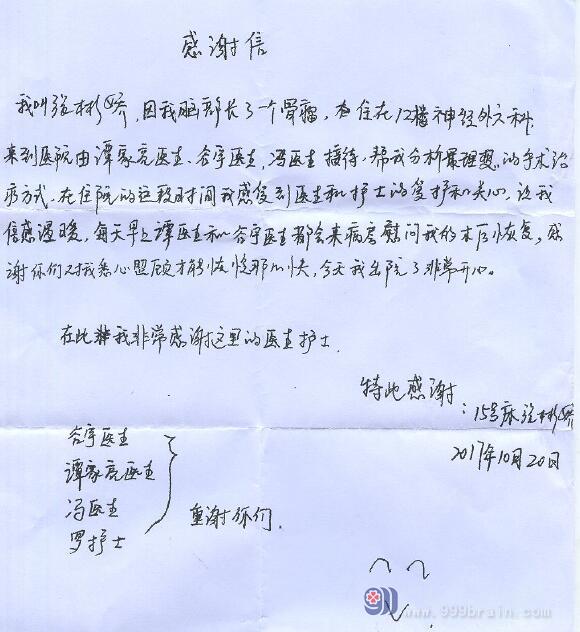 感谢信
我叫张彬娇,因我脑部长了一个骨瘤,住在12楼神经外六科
来到医院由谭家亮医生、谷宇医生,冯医生接待,帮我分析最理想的手术治
疗方式,在住院的这段时间我感受到医生和护士的爱护和关心,让我
倍感温暖,每天早上谭医生和谷宇医生都会来病房慰问我的术后恢复,感
谢你们对我悉心照顾才能恢复那么快,今天我出院了非常开心。
在此我非常感谢这里的医生护士.
特此感谢
:15号床张彬娇
2017年10月20日
谷宇医生
谭家亮医生
冯医生
罗护士
重谢你们.
www.999brain.com